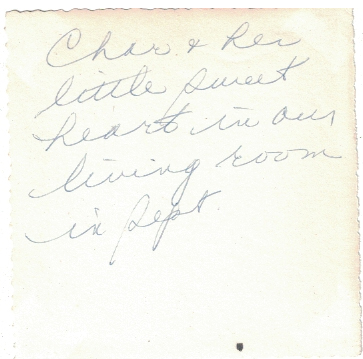 Char & her
little sweet
heart in our
living room
in Sept.